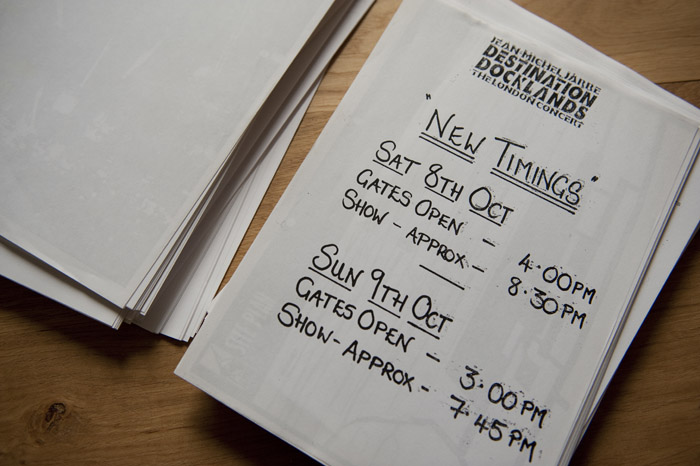 JEAN-MICHEL JARRE
DESTINATION
DOCKLANDS
THE LONDON CONCERT
"NEW TIMINGS"
SAT 8TH OCT
GATES OPEN - 4.00PM
SHOW - APPROX - 8.30PM
SUN 9TH OCT
GATES OPEN - 3.00PM
SHOW - APPROX - 7.45PM